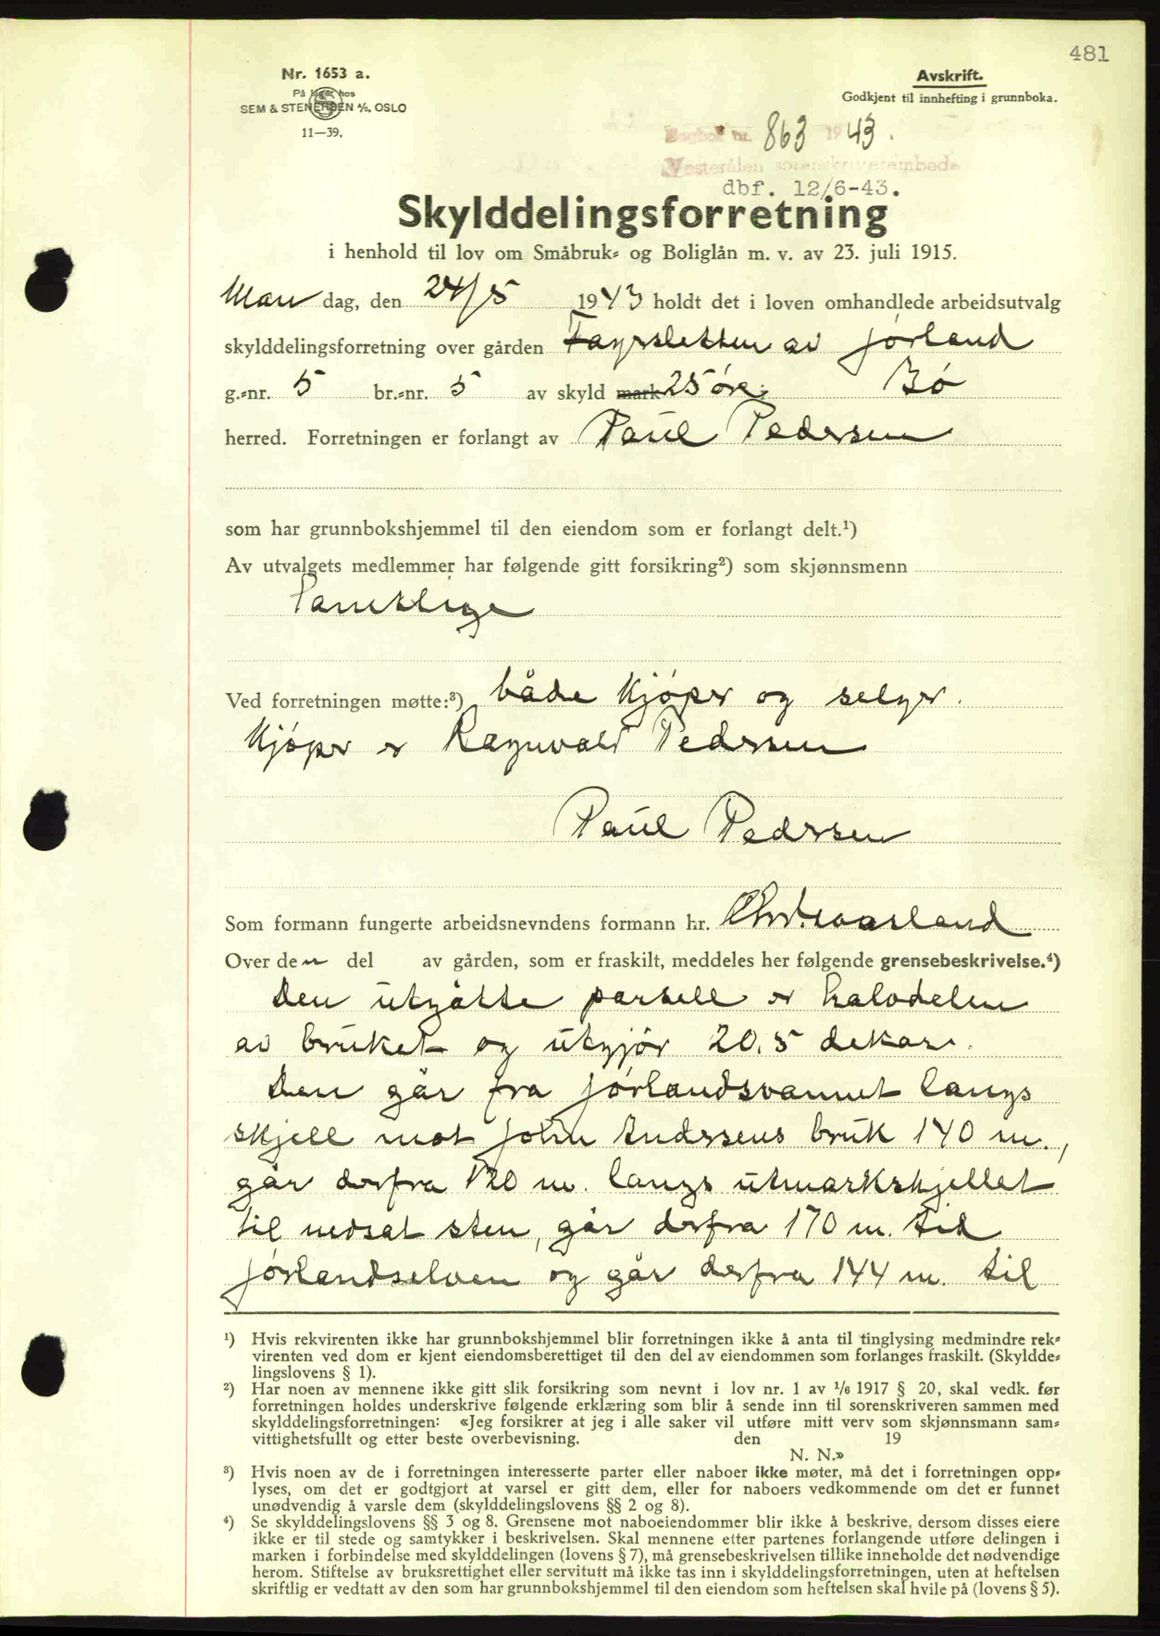 481
Nr. 1653 a.
På lager hos
SEM & STENERSEN A/S, OSLO
11—39.
Avskrift.
Godkjent til innhefting i grunnboka.
Dagbok nr. 863 1943.
Vesterålen sorenskriverembede
dbf. 12/6-43.
Skylddelingsforretning
i henhold til lov om Småbruk- og Boliglån m. v. av 23. juli 1915.
Man dag, den 24/5 1943 holdt det i loven omhandlede arbeidsutvalg
skylddelingsforretning over gården Fagersletten av Jørland
g.-nr. 5 br.-nr. 5 av skyld mark 25 øre; Bø
herred. Forretningen er forlangt av Paul Pedersen
som har grunnbokshjemmel til den eiendom som er forlangt delt.¹)
Av utvalgets medlemmer har følgende gitt forsikring²) som skjønnsmenn
Samtlige
Ved forretningen møtte:³) både kjøper og selger.
Kjøper er Ragnvald Pedersen
Paul Pedersen
Som formann fungerte arbeidsnevndens formann hr. Chr.
Over den del av gården, som er fraskilt, meddeles her følgende grensebeskrivelse.⁴)
Den utgåtte parsell er halvdelen
av bruket og utgjør 20,5 dekar.
Den går fra Jørlandsvannet langs
skjell mot John Andersens bruk 140 m.,
går derfra 120 m. langs utmarkskjellet
til nedsat sten, går derfra 170 m. til
Jørlandselven og går derfra 144 m. til
¹) Hvis rekvirenten ikke har grunnbokshjemmel blir forretningen ikke å anta til tinglysing medmindre rek-
virenten ved dom er kjent eiendomsberettiget til den del av eiendommen som forlanges fraskilt. (Skyldde-
lingslovens § 1).
²) Har noen av mennene ikke gitt slik forsikring som nevnt i lov nr. 1 av 1/6 1917 § 20, skal vedk. før
forretningen holdes underskrive følgende erklæring som blir å sende inn til sorenskriveren sammen med
skylddelingsforretningen: «Jeg forsikrer at jeg i alle saker vil utføre mitt verv som skjønnsmann sam-
vittighetsfullt og etter beste overbevisning. den 19
N. N.»
³) Hvis noen av de i forretningen interesserte parter eller naboer ikke møter, må det i forretningen opp-
lyses, om det er godtgjort at varsel er gitt dem, eller for naboers vedkommende om det er funnet
unødvendig å varsle dem (skylddelingslovens §§ 2 og 8).
⁴) Se skylddelingslovens §§ 3 og 8. Grensene mot naboeiendommer blir ikke å beskrive, dersom disses eiere
ikke er til stede og samtykker i beskrivelsen. Skal mennene etter partenes forlangende utføre delingen i
marken i forbindelse med skylddelingen (lovens § 7), må grensebeskrivelsen tillike inneholde det nødvendige
herom. Stiftelse av bruksrettighet eller servitutt må ikke tas inn i skylddelingsforretningen, uten at heftelsen
skriftlig er vedtatt av den som har grunnbokshjemmel til den eiendom som heftelsen skal hvile på (lovens § 5).